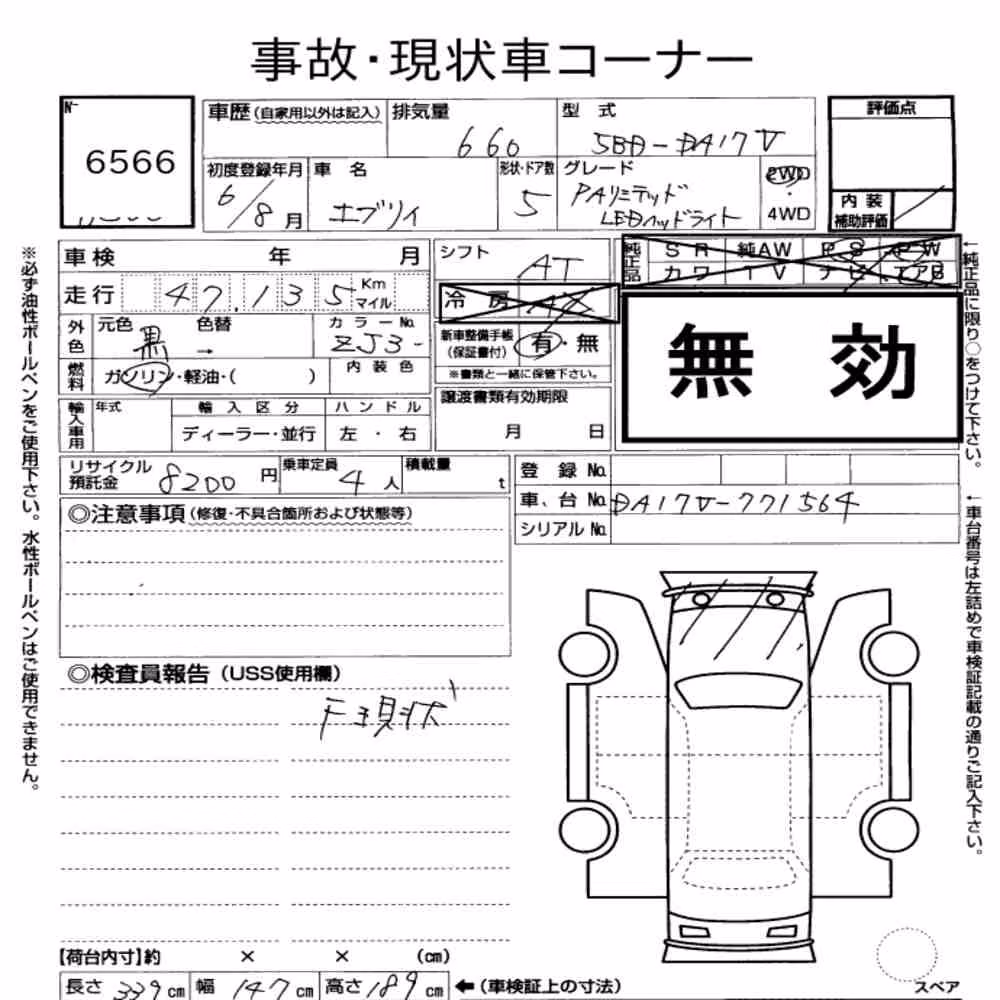 事故・現状車コーナー
6566
車歴 (自家用以外は記入) 排気量 型 式 評価点
660 5BD-DA17V
初度登録年月 車 名 形状・ドア数 グレード 2WD
6/8月 エブリイ 5 PAリミテッド
LEDヘッドライト 4WD
内 装
補助評価
車検 年 月 シフト AT
純正品 S R 純AW P S P W
カワ T V ナビ エアB
走行 47,135 Km
マイル
冷 房
外色 元色 黒 → 色替 カラーNo. ZJ3-
新車整備手帳 (保証書付) 有・無
※書類と一緒に保管下さい。
無 効
燃料 ガソリン・軽油・( ) 内 装 色
輸入車用 年式 輸 入 区 分 ハ ン ド ル
ディーラー・並行 左 ・ 右
譲渡書類有効期限
月 日
リサイクル預託金 8200 円 乗車定員 4 人 積載量 t
登 録 No.
車 、台 No. DA17V-771564
シリアル No.
◎注意事項 (修復・不具合箇所および状態等)
◎検査員報告 (USS使用欄)
【荷台内寸】約 × × (cm)
長さ 339 cm 幅 147 cm 高さ 189 cm ←(車検証上の寸法)
スペア
※必ず油性ボールペンをご使用下さい。水性ボールペンはご使用できません。
←純正品に限り○をつけて下さい。
←車台番号は左詰めで車検証記載の通りご記入下さい。